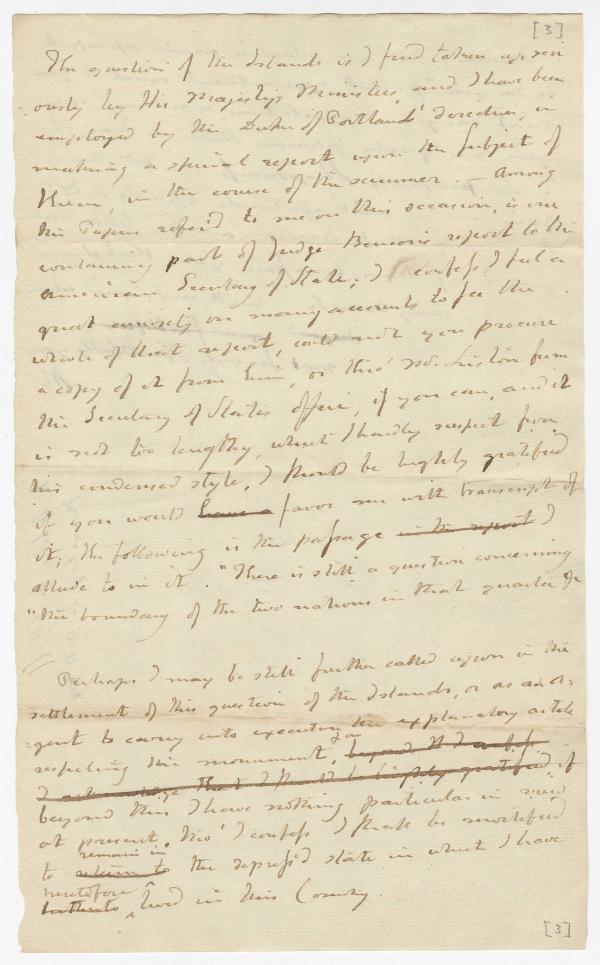 [3]
The question of the Islands is I find taken up seri
ously by His Majestys Ministers, and I have been
employed by the Duke of Portlands' direction, in
making a special report upon the Subject of
them, in the course of the summer. — Among
the Papers refer'd to me on this occasion, is one
containing part of Judge Benson's report to the
American Secretary of State; I confess I feel a
great curiosity on many accounts to see the
whole of that report, could not you procure
a copy of it from him, or thro' Mr. Liston from
the Secretary of State's office, if you can, and it
is not too lengthy, which I hardly suspect from
his condensed style, I should be highly gratified
if you would have a favor me with transcript of
it; the following is the passage in the report I
allude to in it. "There is still a question concerning
"the boundary of the two nations in that quarter &c
Perhaps I may be still further called upon in the
settlement of this question of the Islands, or as an a-
gent to carry into execution the explanatory article
respecting the monument, or beyond it I
I acknowledge that I should be highly gratified if
beyond this I have nothing particular in view
at present, tho' I confess I shall be mortified
to return to remain in the depress'd state in which I have
hitherto heretofore lived in this Country.
[3]